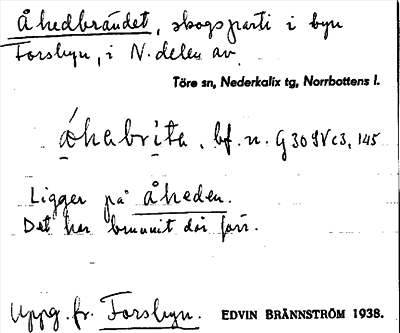 Åhedbrändet, skogsparti i byn
Forsbyn, i N. delen av
Töre sn, Nederkalix tg, Norrbottens l.
åhabrita, bf. n. G 30 9V c3, 145
Ligger på Åheden.
Det har brunnit där förr.
Uppg. fr. Forsbyn. EDVIN BRÄNNSTRÖM 1938.